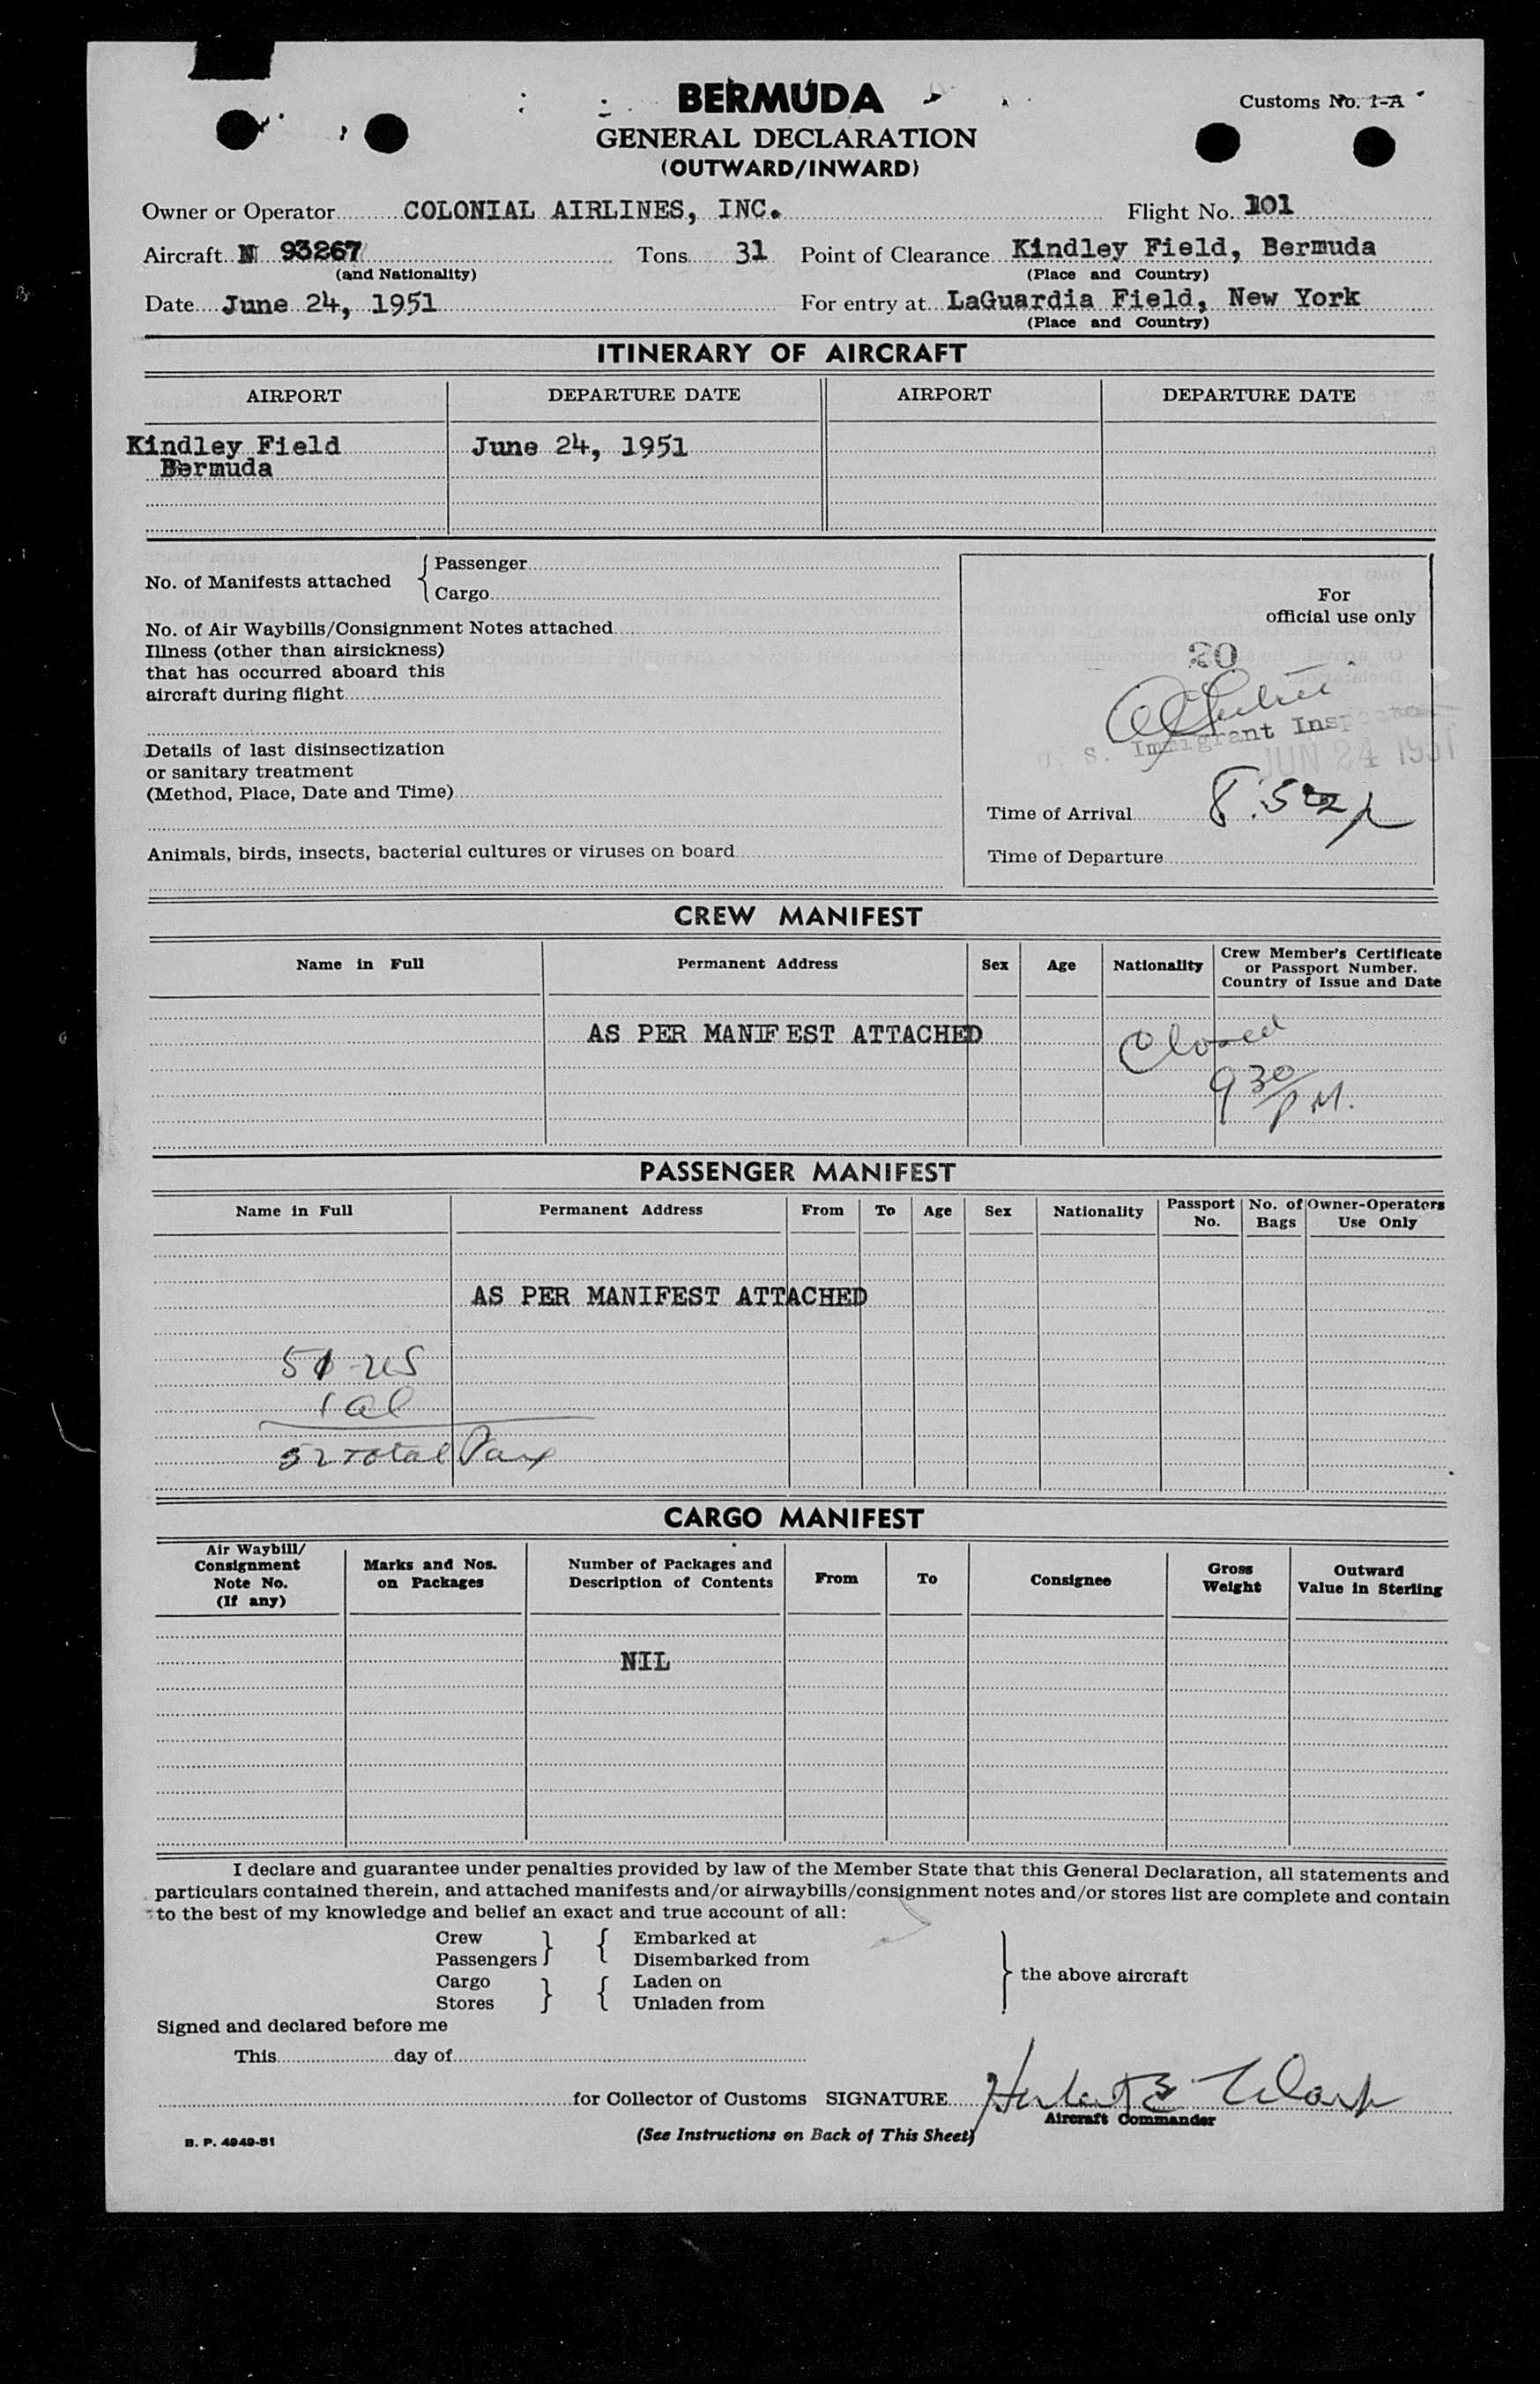 BERMUDA
Customs No. 1-A
GENERAL DECLARATION
(OUTWARD/INWARD)
Owner or Operator COLONIAL AIRLINES, INC. Flight No. 101
Aircraft N 93267 Tons 31 Point of Clearance Kindley Field, Bermuda
(and Nationality) (Place and Country)
Date June 24, 1951 For entry at LaGuardia Field, New York
(Place and Country)
ITINERARY OF AIRCRAFT
AIRPORT DEPARTURE DATE AIRPORT DEPARTURE DATE
Kindley Field June 24, 1951
Bermuda
No. of Manifests attached { Passenger
Cargo
For
official use only
No. of Air Waybills/Consignment Notes attached
Illness (other than airsickness)
that has occurred aboard this
aircraft during flight
20
U. S. Immigrant Inspector
JUN 24 1951
Details of last disinsectization
or sanitary treatment
(Method, Place, Date and Time)
Time of Arrival 8:52 p
Animals, birds, insects, bacterial cultures or viruses on board
Time of Departure
CREW MANIFEST
Name in Full Permanent Address Sex Age Nationality Crew Member's Certificate
or Passport Number.
Country of Issue and Date
AS PER MANIFEST ATTACHED
Closed
9 30 PM.
PASSENGER MANIFEST
Name in Full Permanent Address From To Age Sex Nationality Passport No. No. of Bags Owner-Operators Use Only
AS PER MANIFEST ATTACHED
51-US
1 al
52 Total Pax
CARGO MANIFEST
Air Waybill/
Consignment
Note No.
(If any)
Marks and Nos.
on Packages
Number of Packages and
Description of Contents
From To Consignee
Gross
Weight
Outward
Value in Sterling
NIL
I declare and guarantee under penalties provided by law of the Member State that this General Declaration, all statements and
particulars contained therein, and attached manifests and/or airwaybills/consignment notes and/or stores list are complete and contain
to the best of my knowledge and belief an exact and true account of all:
Crew } { Embarked at
Passengers Disembarked from
Cargo } { Laden on
Stores Unladen from
} the above aircraft
Signed and declared before me
This day of
for Collector of Customs SIGNATURE Herbert B.
Aircraft Commander
(See Instructions on Back of This Sheet)
B. P. 4949-51